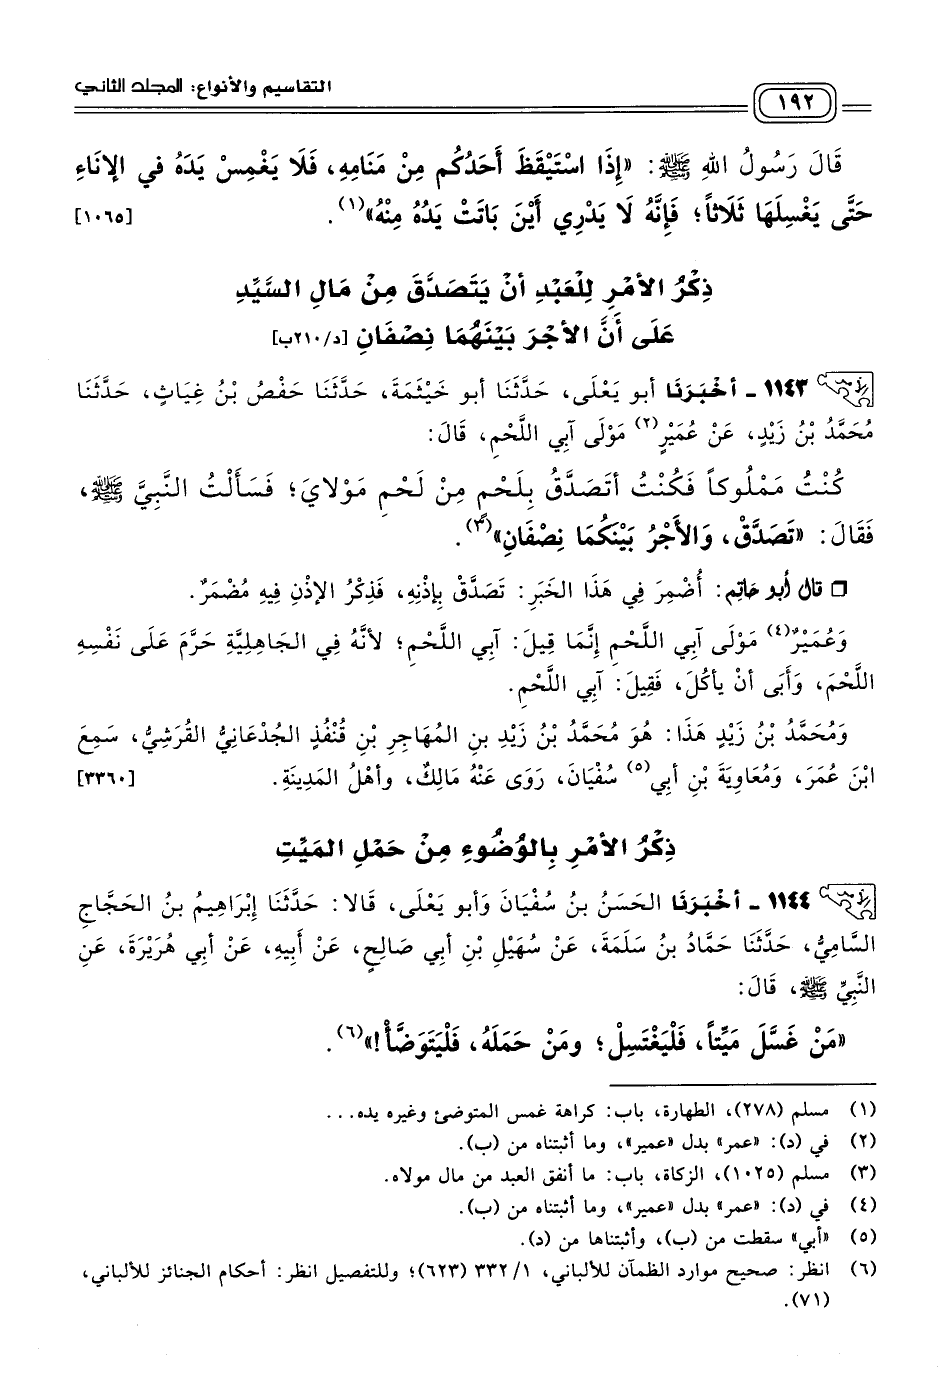 ١٩٢ التقاسيم والأنواع: المجلد الثاني
قَالَ رَسُولُ اللهِ ﷺ: «إِذَا اسْتَيْقَظَ أَحَدُكُم مِنْ مَنَامِهِ، فَلَا يَغْمِسْ يَدَهُ في الإنَاءِ
حَتَّى يَغْسِلَهَا ثَلَاثاً؛ فَإِنَّهُ لَا يَدْرِي أَيْنَ بَاتَتْ يَدُهُ مِنْهُ»(١). [١٠٦٥]
ذِكْرُ الأمْرِ لِلْعَبْدِ أنْ يَتَصَدَّقَ مِنْ مَالِ السَّيِّدِ
عَلَى أَنَّ الأجْرَ بَيْنَهُمَا نِصْفَانِ [د/٢١٠ب]
١١٤٣ ـ أخْبَرَنَا أبو يَعْلَى، حَدَّثَنَا أبو خَيْثَمَةَ، حَدَّثَنَا حَفْصُ بْنُ غِيَاثٍ، حَدَّثَنَا
مُحَمَّدُ بْنُ زَيْدٍ، عَنْ عُمَيْرٍ(٢) مَوْلَى آبِي اللَّحْمِ، قَالَ:
كُنْتُ مَمْلُوكاً فَكُنْتُ أتَصَدَّقُ بِلَحْمٍ مِنْ لَحْمِ مَوْلايَ؛ فَسَألْتُ النَّبِيَّ ﷺ،
فَقَالَ: «تَصَدَّقْ، وَالأَجْرُ بَيْنَكُمَا نِصْفَانِ»(٣).
❒ قال أبو حاتم: أُضْمِرَ فِي هَذَا الخَبَرِ: تَصَدَّقْ بِإذْنِهِ، فَذِكْرُ الإذْنِ فِيهِ مُضْمَرٌ.
وَعُمَيْرٌ(٤) مَوْلَى آبِي اللَّحْمِ إنَّمَا قِيلَ: آبِي اللَّحْمِ؛ لأنَّهُ فِي الجَاهِلِيَّةِ حَرَّمَ عَلَى نَفْسِهِ
اللَّحْمَ، وَأَبَى أنْ يأكُلَ، فَقِيلَ: آبِي اللَّحْمِ.
وَمُحَمَّدُ بْنُ زَيْدٍ هَذَا: هُوَ مُحَمَّدُ بْنُ زَيْدِ بنِ المُهَاجِرِ بْنِ قُنْفُذٍ الجُدْعَانِيُّ القُرَشِيُّ، سَمِعَ
ابْنَ عُمَرَ، وَمُعَاوِيَةَ بْنِ أبي(٥) سُفْيَانَ، رَوَى عَنْهُ مَالِكٌ، وأهْلُ المَدِينَةِ. [٣٣٦٠]
ذِكْرُ الأمْرِ بِالوُضُوءِ مِنْ حَمْلِ المَيِّتِ
١١٤٤ ـ أخْبَرَنَا الحَسَنُ بنُ سُفْيَانَ وَأبو يَعْلَى، قَالا: حَدَّثَنَا إبْرَاهِيمُ بنُ الحَجَّاجِ
السَّامِيُّ، حَدَّثَنَا حَمَّادُ بنُ سَلَمَةَ، عَنْ سُهَيْلِ بْنِ أبي صَالِحٍ، عَنْ أَبِيهِ، عَنْ أبي هُرَيْرَةَ، عَنِ
النَّبِيِّ ﷺ، قَالَ:
«مَنْ غَسَّلَ مَيِّتاً، فَلْيَغْتَسِلْ؛ ومَنْ حَمَلَهُ، فَلْيَتَوَضَّأْ!»(٦).
(١) مسلم (٢٧٨)، الطهارة، باب: كراهة غمس المتوضئ وغيره يده...
(٢) في (د): «عمر» بدل «عمير»، وما أثبتناه من (ب).
(٣) مسلم (١٠٢٥)، الزكاة، باب: ما أنفق العبد من مال مولاه.
(٤) في (د): «عمر» بدل «عمير»، وما أثبتناه من (ب).
(٥) «أبي» سقطت من (ب)، وأثبتناها من (د).
(٦) انظر: صحيح موارد الظمآن للألباني، ٣٣٢/١ (٦٢٣)؛ وللتفصيل انظر: أحكام الجنائز للألباني،
(٧١).